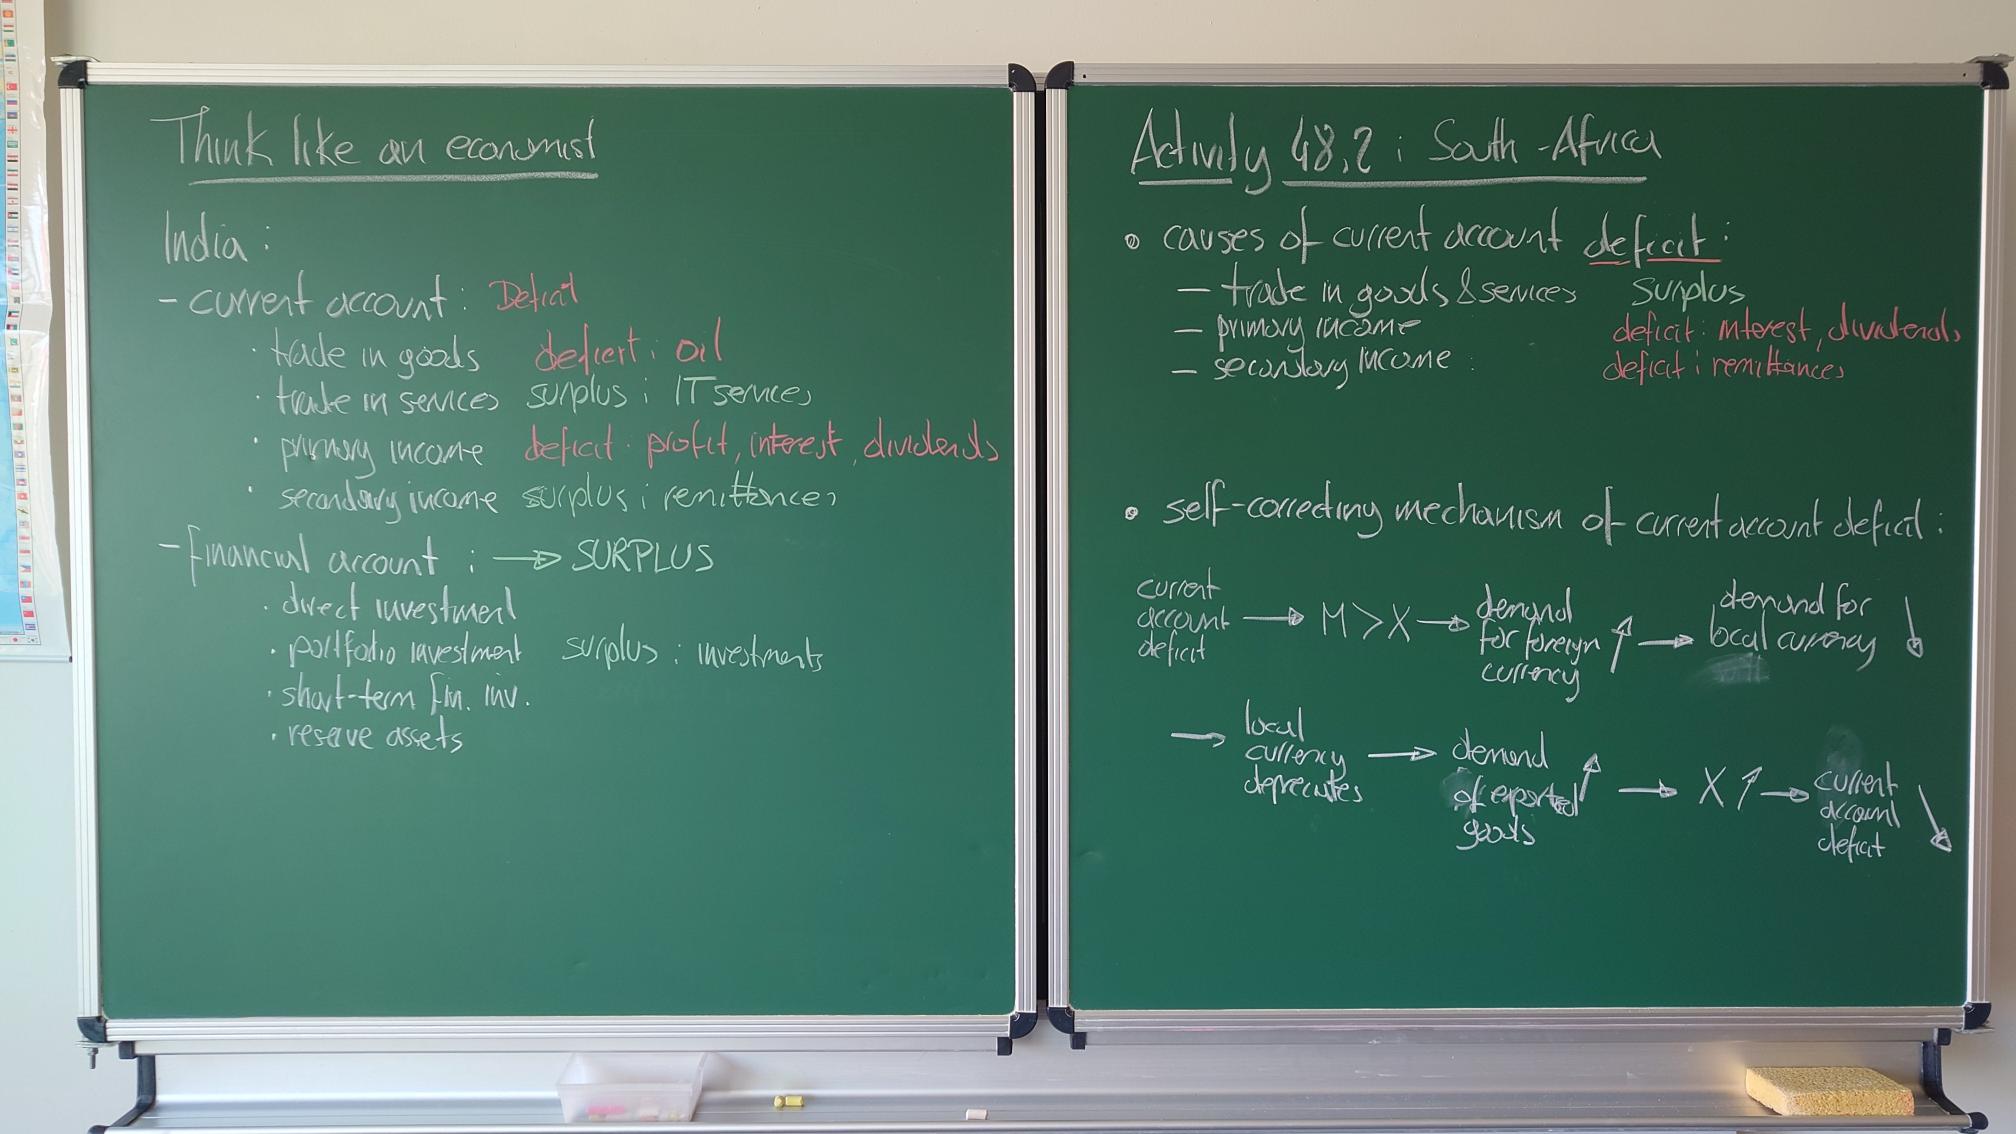 Think like an economist
India :
- current account : Deficit
· trade in goods deficit : oil
· trade in services surplus : IT services
· primary income deficit : profit, interest, dividends
· secondary income surplus : remittances
- Financial account : → SURPLUS
· direct investment
· portfolio investment surplus : investments
· short-term fin. inv.
· reserve assets
Activity 48.2 : South-Africa
• causes of current account deficit :
- trade in goods & services surplus
- primary income deficit : interest, dividends
- secondary income : deficit : remittances
• self-correcting mechanism of current account deficit :
current account deficit → M > X → demand for foreign currency ↑ → demand for local currency ↓
→ local currency depreciates → demand of exported goods ↑ → X ↑ → current account deficit ↓